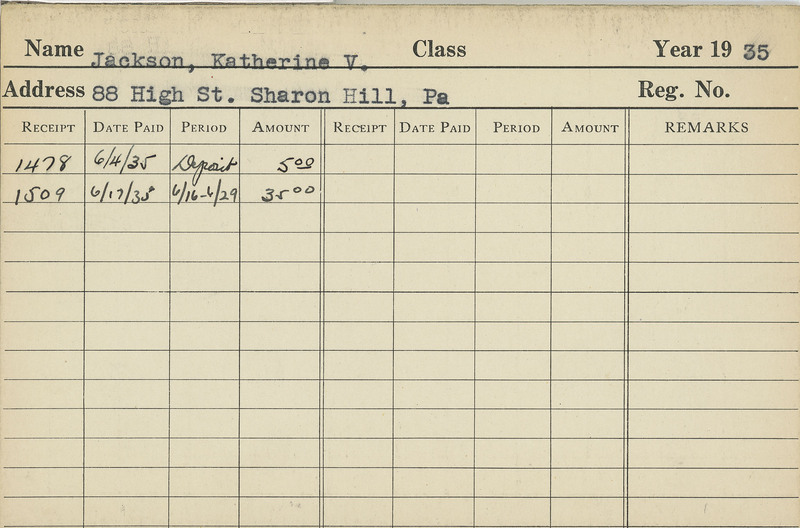 Name Jackson, Katherine V. Class Year 19 35
Address 88 High St. Sharon Hill, Pa Reg. No.
RECEIPT DATE PAID PERIOD AMOUNT RECEIPT DATE PAID PERIOD AMOUNT REMARKS
1478 6/4/35 Deposit 5 00
1509 6/17/35 6/16-6/29 35 00